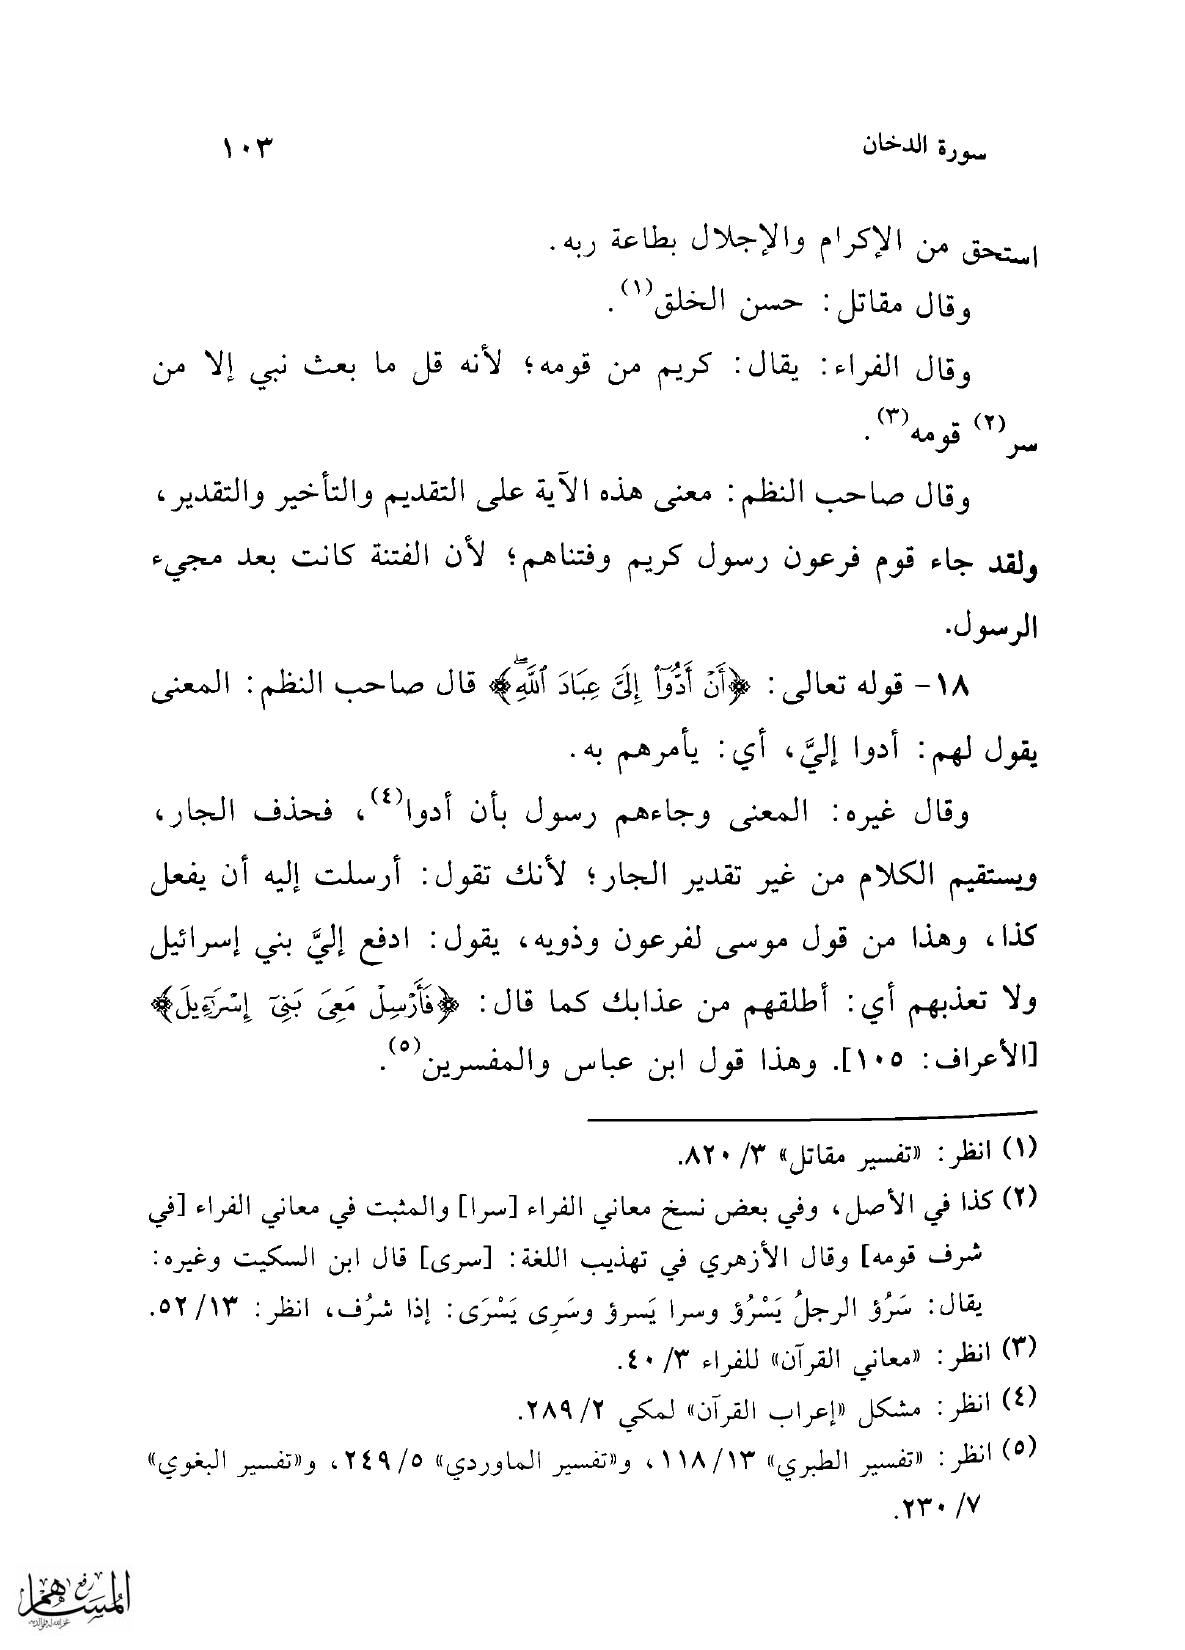 سورة الدخان ١٠٣
استحق من الإكرام والإجلال بطاعة ربه.
وقال مقاتل: حسن الخلق(١).
وقال الفراء: يقال: كريم من قومه؛ لأنه قل ما بعث نبي إلا من
سر(٢) قومه(٣).
وقال صاحب النظم: معنى هذه الآية على التقديم والتأخير والتقدير،
ولقد جاء قوم فرعون رسول كريم وفتناهم؛ لأن الفتنة كانت بعد مجيء
الرسول.
١٨- قوله تعالى: ﴿أَنْ أَدُّوٓاْ إِلَىَّ عِبَادَ ٱللَّهِۖ﴾ قال صاحب النظم: المعنى
يقول لهم: أدوا إليَّ، أي: يأمرهم به.
وقال غيره: المعنى وجاءهم رسول بأن أدوا(٤)، فحذف الجار،
ويستقيم الكلام من غير تقدير الجار؛ لأنك تقول: أرسلت إليه أن يفعل
كذا، وهذا من قول موسى لفرعون وذويه، يقول: ادفع إليَّ بني إسرائيل
ولا تعذبهم أي: أطلقهم من عذابك كما قال: ﴿فَأَرْسِلْ مَعِىَ بَنِىٓ إِسْرَٰٓءِيلَ﴾
[الأعراف: ١٠٥]. وهذا قول ابن عباس والمفسرين(٥).
(١) انظر: «تفسير مقاتل» ٣/ ٨٢٠.
(٢) كذا في الأصل، وفي بعض نسخ معاني الفراء [سرا] والمثبت في معاني الفراء [في
شرف قومه] وقال الأزهري في تهذيب اللغة: [سرى] قال ابن السكيت وغيره:
يقال: سَرُؤ الرجلُ يَسْرُؤ وسرا يَسرؤ وسَرِى يَسْرَى: إذا شرُف، انظر: ١٣/ ٥٢.
(٣) انظر: «معاني القرآن» للفراء ٣/ ٤٠.
(٤) انظر: مشكل «إعراب القرآن» لمكي ٢/ ٢٨٩.
(٥) انظر: «تفسير الطبري» ١٣/ ١١٨، و«تفسير الماوردي» ٥/ ٢٤٩، و«تفسير البغوي»
٧/ ٢٣٠.
رفع
المساهم